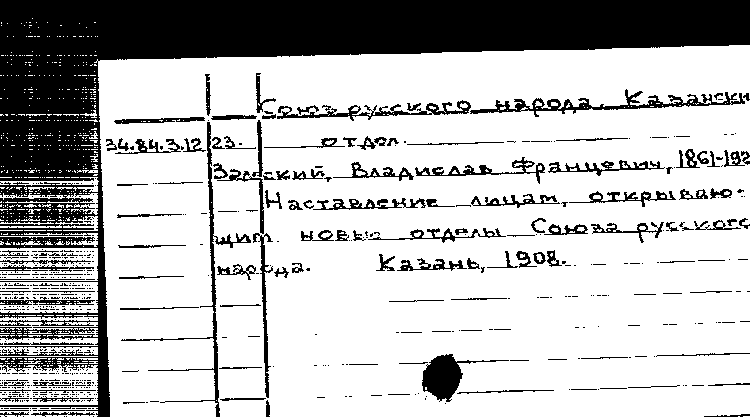 Союз русского народа. Казански
34.84.3.12 23. отдел.
Залеский, Владислав Францевич, 1861-192
Наставление лицам, открываю-
щим новые отделы Союза русского
народа. Казань, 1908.